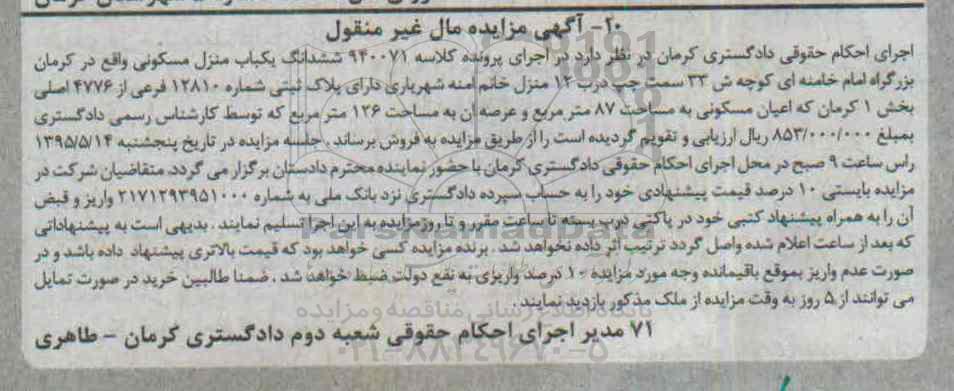 ۲۰- آگهی مزایده مال غیر منقول
اجرای احکام حقوقی دادگستری کرمان در نظر دارد در اجرای پرونده کلاسه ۹۴۰۰۷۱ ششدانگ یکباب منزل مسکونی واقع در کرمان
بزرگراه امام خامنه ای کوچه ش ۳۳ سمت چپ درب ۱۲ منزل خانم امنه شهریاری دارای پلاک ثبتی شماره ۱۲۸۱۰ فرعی از ۴۷۷۶ اصلی
بخش ۱ کرمان که اعیان مسکونی به مساحت ۸۷ متر مربع و عرصه آن به مساحت ۱۲۶ متر مربع که توسط کارشناس رسمی دادگستری
بمبلغ ۸۵۳/۰۰۰/۰۰۰ ریال ارزیابی و تقویم گردیده است را از طریق مزایده به فروش برساند . جلسه مزایده در تاریخ پنجشنبه ۱۳۹۵/۵/۱۴
راس ساعت ۹ صبح در محل اجرای احکام حقوقی دادگستری کرمان با حضور نماینده محترم دادستان برگزار می گردد. متقاضیان شرکت در
مزایده بایستی ۱۰ درصد قیمت پیشنهادی خود را به حساب سپرده دادگستری نزد بانک ملی به شماره ۲۱۷۱۲۹۳۹۵۱۰۰۰ واریز و قبض
آن را به همراه پیشنهاد کتبی خود در پاکتی درب بسته تا ساعت مقرر و تا روز مزایده به این اجرا تسلیم نمایند . بدیهی است به پیشنهاداتی
که بعد از ساعت اعلام شده واصل گردد ترتیب اثر داده نخواهد شد . برنده مزایده کسی خواهد بود که قیمت بالاتری پیشنهاد داده باشد و در
صورت عدم واریز بموقع باقیمانده وجه مورد مزایده ۱۰ درصد واریزی به نفع دولت ضبط خواهد شد . ضمنا طالبین خرید در صورت تمایل
می توانند از ۵ روز به وقت مزایده از ملک مذکور بازدید نمایند .
پایگاه اطلاع رسانی مناقصه و مزایده
۷۱ مدیر اجرای احکام حقوقی شعبه دوم دادگستری کرمان - طاهری
۰۲۱-۸۸۳۴۹۶۷۰-۵